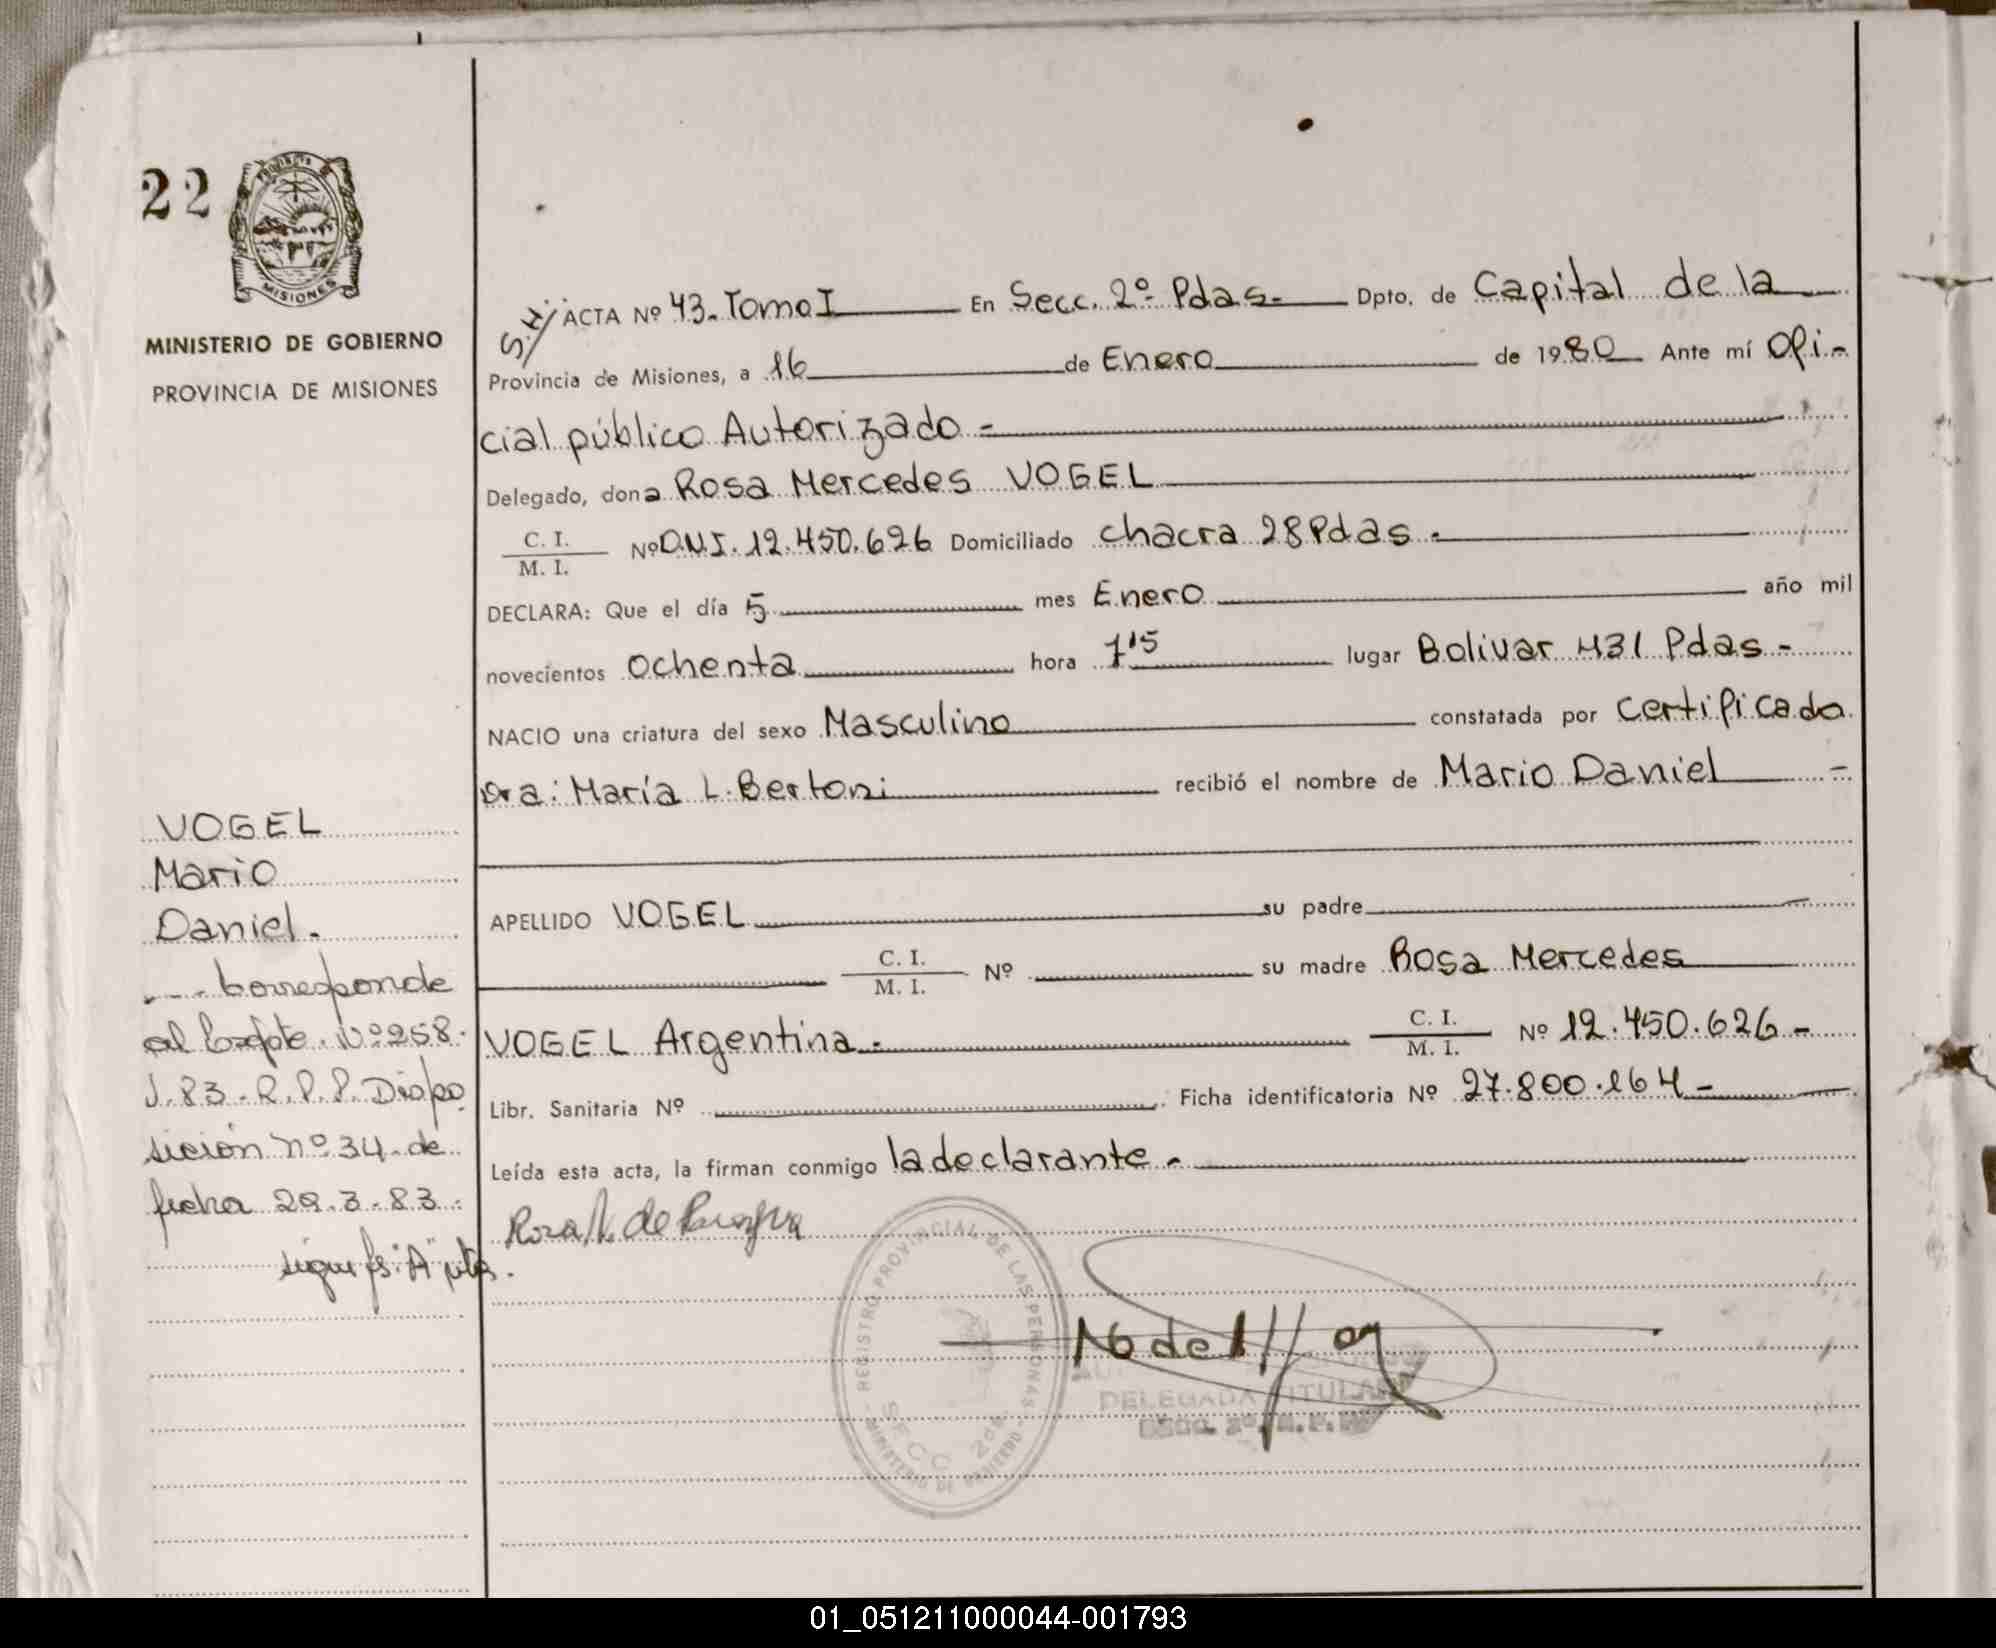 22
PROVINCIA
MISIONES
MINISTERIO DE GOBIERNO
PROVINCIA DE MISIONES
S.H/ ACTA Nº 43. Tomo I En Secc. 2º Pdas. Dpto. de Capital de la
Provincia de Misiones, a 16 de Enero de 1980 Ante mí Ofi-
cial público Autorizado -
Delegado, dona Rosa Mercedes VOGEL
C. I.
M. I. Nº D.N.I. 12.450.626 Domiciliado chacra 28 Pdas -
DECLARA: Que el día 5 mes Enero año mil
novecientos ochenta hora 7'15 lugar Bolivar 431 Pdas -
NACIO una criatura del sexo Masculino constatada por certificado
Dra: María L. Bertoni recibió el nombre de Mario Daniel -
APELLIDO VOGEL su padre
C. I.
M. I. Nº su madre Rosa Mercedes
VOGEL Argentina - C. I.
M. I. Nº 12.450.626 -
Libr. Sanitaria Nº Ficha identificatoria Nº 27.800.164 -
Leída esta acta, la firman conmigo la declarante -
VOGEL
Mario
Daniel.
corresponde
al Expte. Nº 258.
J. 83. R.P.P. Dispo
sición nº 34 de
fecha 29.3.83.
sigue fs. "A" vta.
Rosa de
REGISTRO PROVINCIAL DE LAS PERSONAS
SECC. 2da.
MINISTERIO DE GOBIERNO
DELEGADA TITULAR
01_051211000044-001793